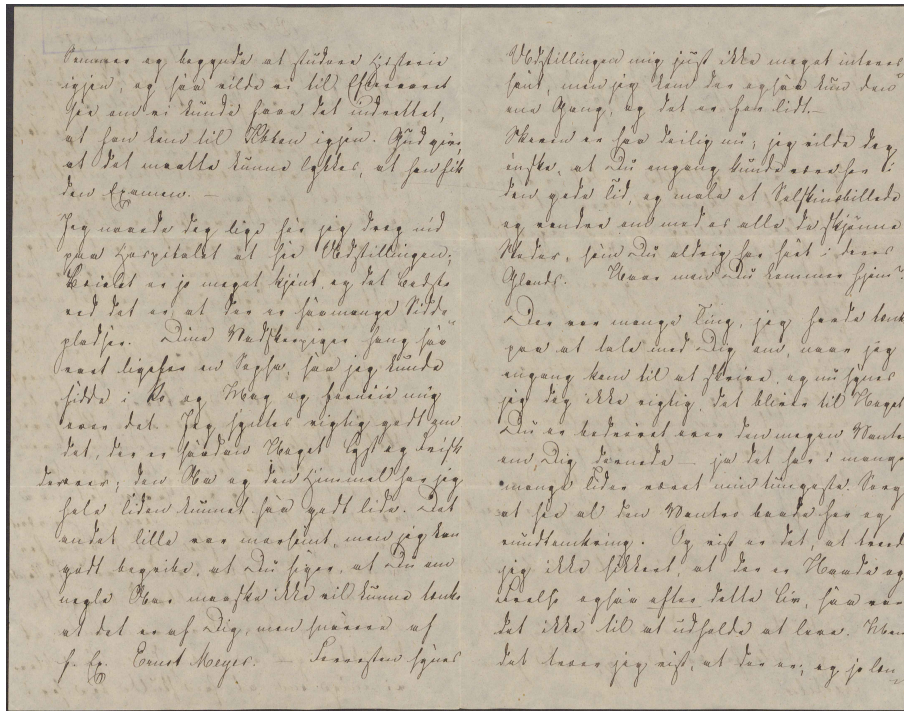 Sommer og begynde at studere Historie
igjen, og saa vilde vi til Efteraaret
see om vi kunde faae det indrettet,
at han kom til Kbhvn igjen. Gud give,
at det maatte kunne lykkes, at han fik
den Examen. —
Jeg naaede dog lige før jeg drog ind
paa Hospitalet at see Udstillingen;
Localet er jo meget kjønt, og det Bedste
ved det er at der er saamange Sidde
pladser. Dine Vadskerpiger hang saa
rart ligefor en Sopha, saa jeg kunde
sidde i Ro og Mag og fornøie mig
over det. Jeg syntes rigtig godt om
det, der er saadan Noget Lyst og Friskt
derover; den Aa og den Himmel har jeg
hele Tiden kunnet saa godt lide. Det
andet lille var morsomt, men jeg kan
godt begribe, at Du siger, at Du om
nogle Aar maaske ikke vil kunne tænke
at det er af Dig, men snarere af
f. Ex. Ernst Meyer. — Forresten synes
Udstillingen mig just ikke meget interes
sant, men jeg kom der ogsaa kun den
ene Gang, og det er for lidt.—
Skoven er saa deilig nu; jeg vilde dog
ønske, at Du engang kunde være her i
den gode Tid, og male et Solskinsbillede
og vandre om med os alle de skjønne
Steder, som Du aldrig har seet i deres
Glands. Naar mon Du kommer hjem?
Der var mange Ting, jeg havde tænkt
paa at tale med Dig om, naar jeg
engang kom til at skrive, og nu synes
jeg dog ikke rigtig, det bliver til Noget.
Du er bedrøvet over den megen Vantro
om Dig dernede — ja det har i mange
mange Tider været min tungeste Sorg
at see al den Vantro baade her og
rundtomkring. Og vist er det, at troede
jeg ikke sikkert, at der er Naade og
Frelse ogsaa efter dette Liv, saa var
det ikke til at udholde at leve. Men
det troer jeg vist, at der er; og jo læn